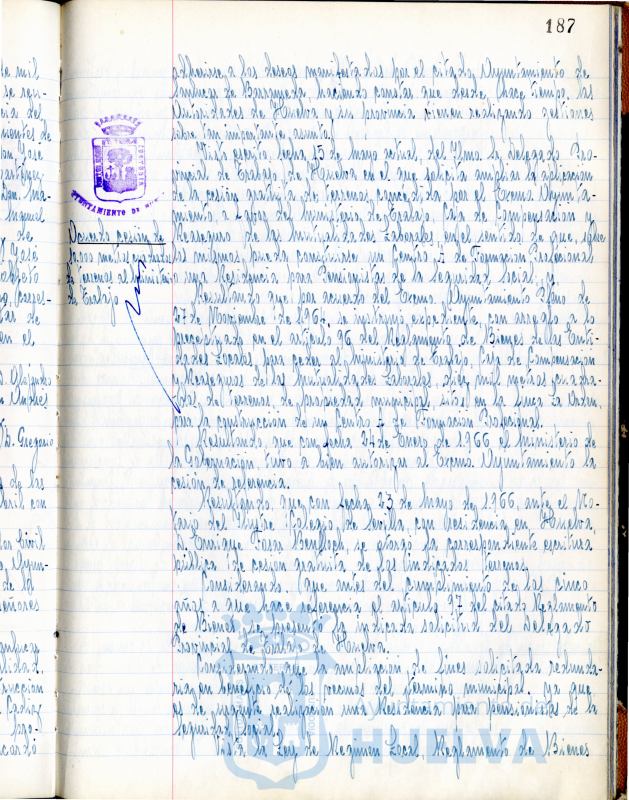 187
adherirse a los deseos manifestados por el citado Ayuntamiento de
Sanlúcar de Barrameda, haciendo constar que desde hace tiempo, las
Autoridades de Huelva y su provincia vienen realizando gestiones
sobre tan importante asunto.
Visto escrito, fecha 15 de Mayo actual, del Ilmo. Sr. Delegado Pro-
vincial de Trabajo de Huelva en el que solicita ampliar la aplicación
de la cesión gratuita de terrenos concedida por el Excmo. Ayunta-
miento a favor del Ministerio de Trabajo, Caja de Compensación y
Reaseguro de las Mutualidades Laborales, en el sentido de que, sobre
los mismos pueda construirse un Centro de Formación Profesional
o una Residencia para Pensionistas de la Seguridad Social, y
Resultando que por acuerdo del Excmo. Ayuntamiento Pleno de
27 de Noviembre de 1964, se instruyó expediente, con arreglo a lo
preceptuado en el artículo 96 del Reglamento de Bienes de las Enti-
dades Locales para ceder al Ministerio de Trabajo, Caja de Compensación
y Reaseguros de las Mutualidades Laborales, diez mil metros cuadra-
dos de terrenos, de propiedad municipal, sitos en la finca La Orden,
para la construcción de un Centro de Formación Profesional.
Resultando, que con fecha 24 de Enero de 1966 el Ministerio de
la Gobernación, tuvo a bien autorizar al Excmo. Ayuntamiento la
cesión de referencia.
Resultando, que con fecha 23 de Mayo de 1966, ante el No-
tario del Ilustre Colegio de Sevilla, con residencia en Huelva,
D. Enrique se otorgó la correspondiente escritura
pública de cesión gratuita de los indicados terrenos.
Considerando, que antes del cumplimiento de los cinco
años a que hace referencia el artículo 97 del citado Reglamento
de Bienes, se presenta la indicada solicitud del Delegado
Provincial de Trabajo de Huelva.
Considerando que la ampliación de fines solicitada redunda-
ría en beneficio de los vecinos del término municipal, ya que
es de urgente realización una Residencia para pensionistas de la
Seguridad Social.
Vista la Ley de Régimen Local, Reglamento de Bienes
AYUNTAMIENTO DE
Acuerdo cesión de
10.000 metros cuadrados
de terrenos al Ministerio
de Trabajo
ayuntamiento de
HUELVA